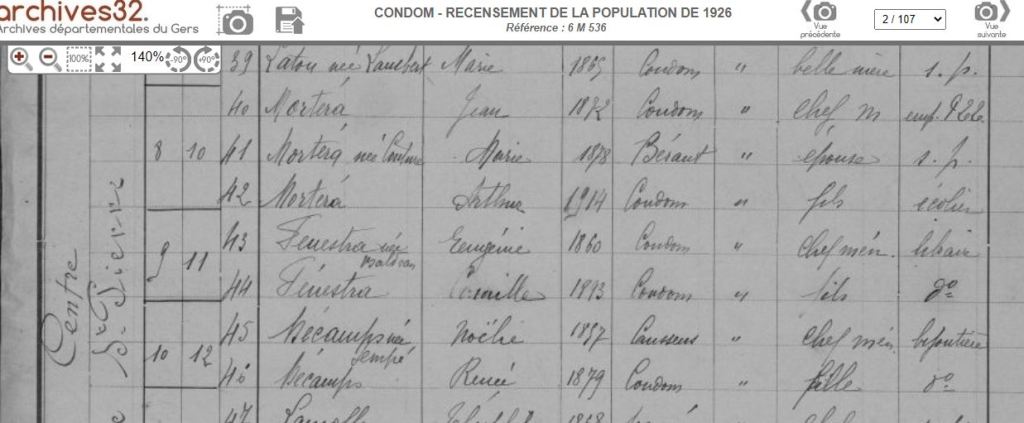 archives32.
Archives départementales du Gers
CONDOM - RECENSEMENT DE LA POPULATION DE 1926
Référence : 6 M 536
Vue précédente
2 / 107
Vue suivante
100% 140% -90° +90°
39 Marie Condom " belle mère s. p.
40 Morterá Jean 1872 Condom " chef m
8 10 41 Morterá née Marie 1878 Béraut " épouse s. p.
42 Morterá Arthur 1914 Condom " fils écolier
9 11 43 Fenestra née Eugénie 1860 Condom " chef mén. libraire
44 Fénestra Camille 1893 Condom " fils do
10 12 45 Décamps née Sempé Noélie 1857 Caussens " chef mén. bijoutière
46 Décamps Renée 1879 Condom " fille do
47
Centre
St. Pierre